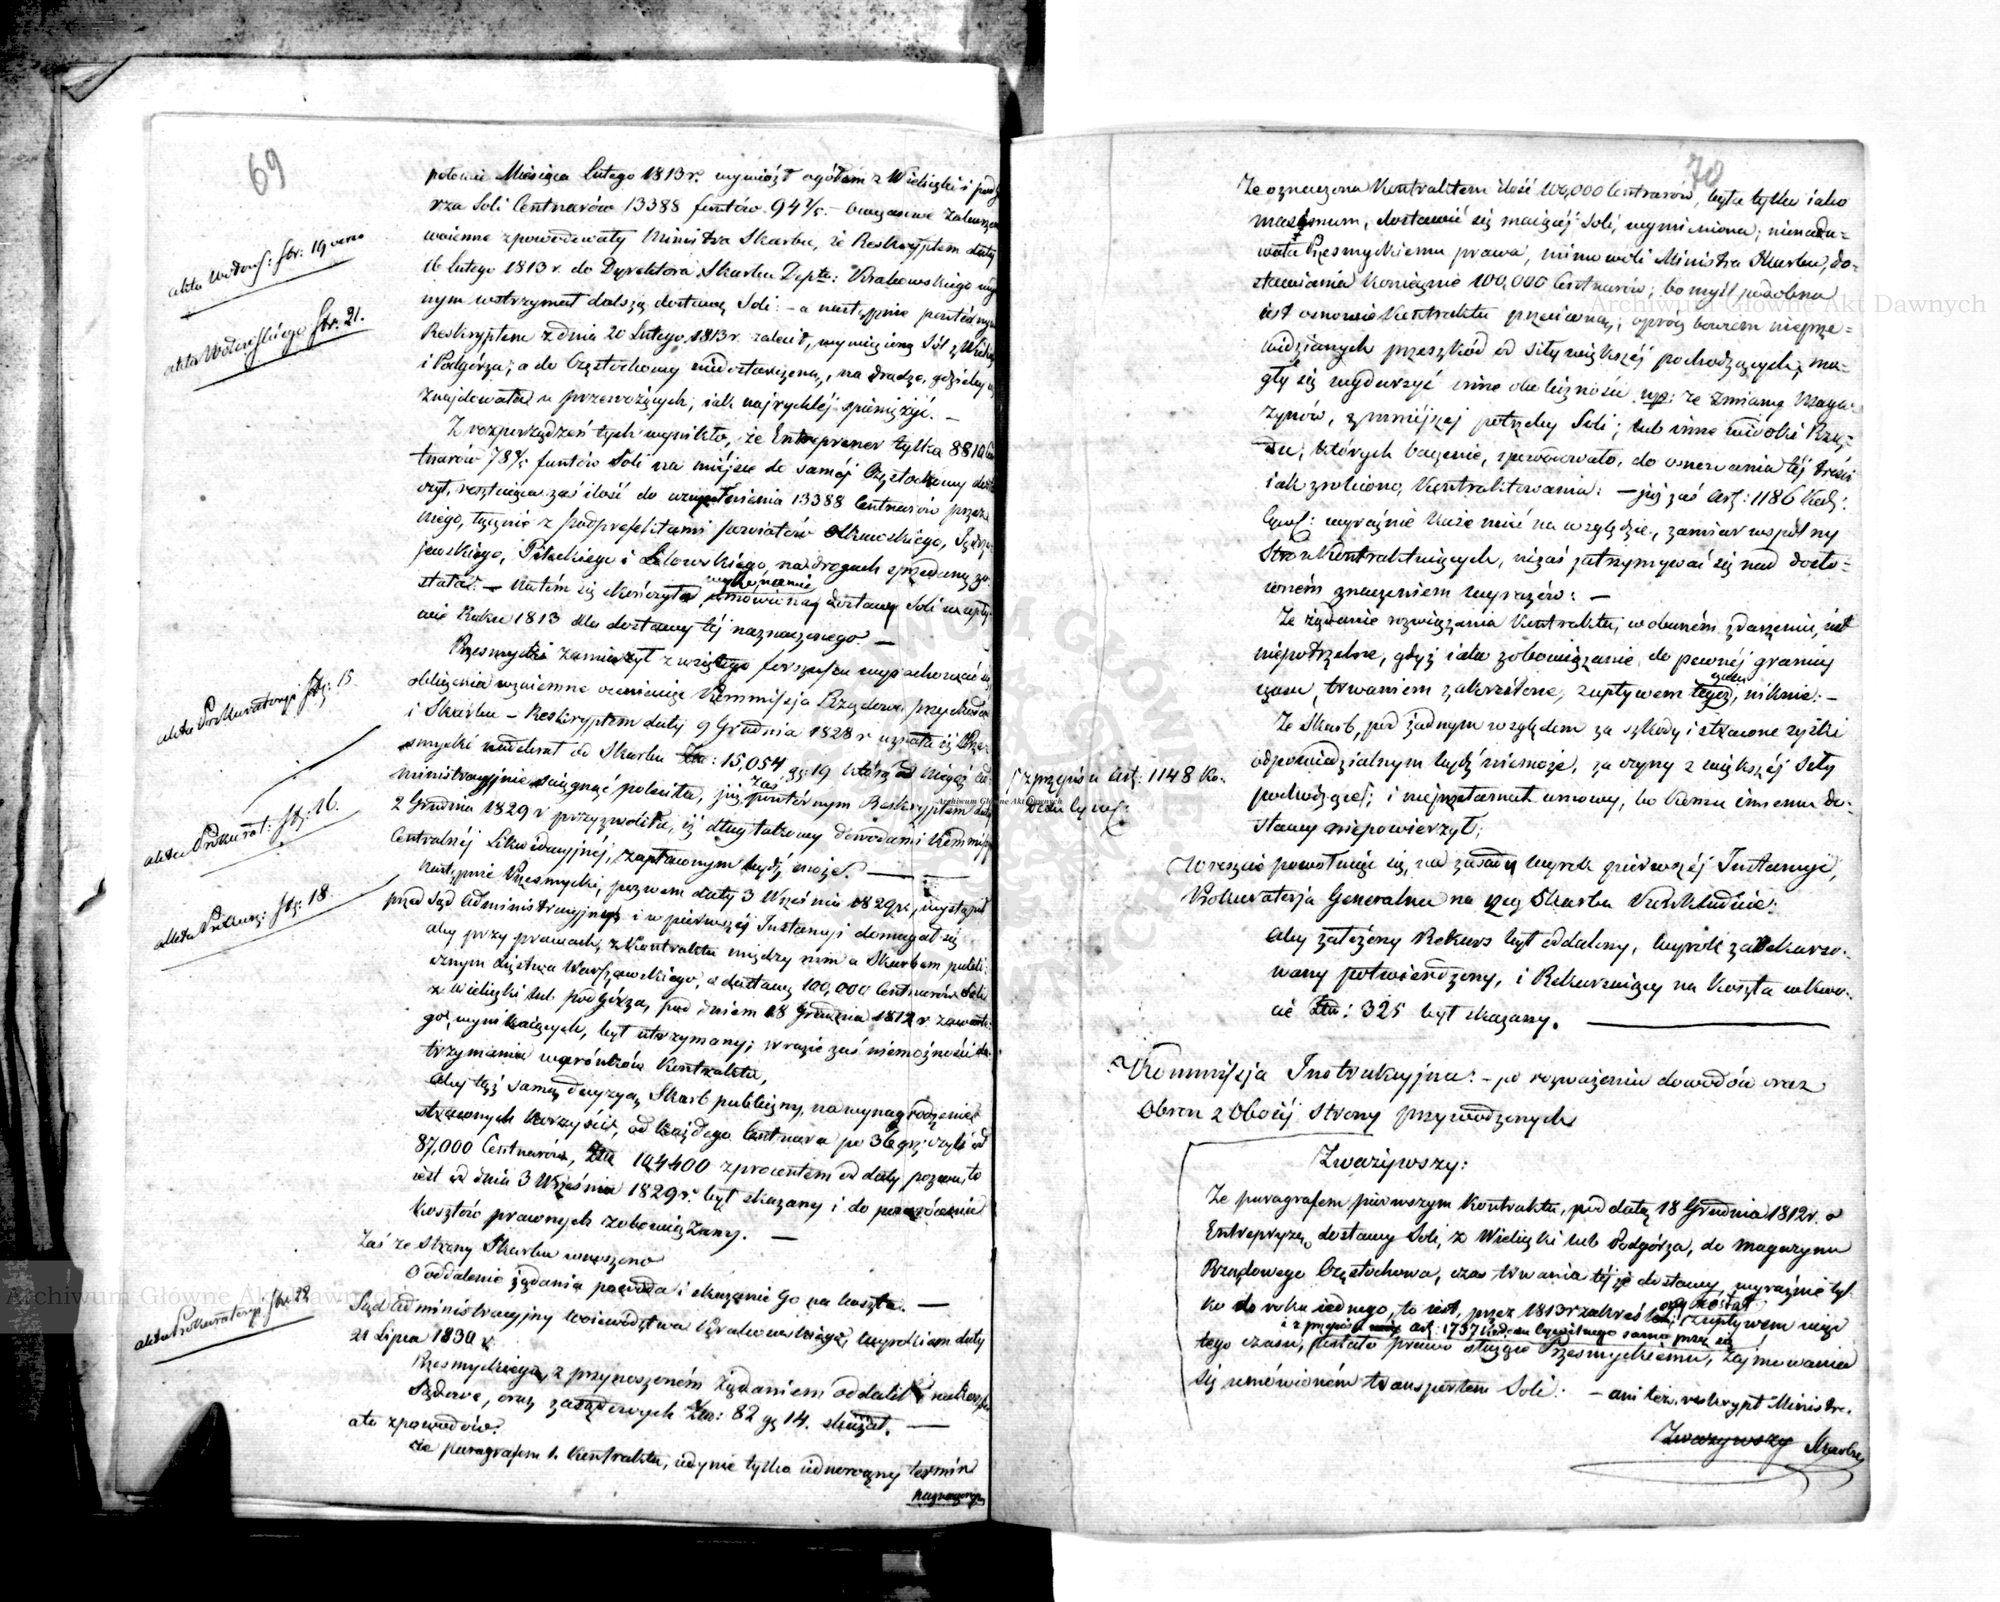 69
połowie Miesiąca Lutego 1813 r. wywiózł ogółem z Wieliczki i Podgó
rza Soli Centnarów 13388 funtów 94 2/5. –
woienne spowodowały Ministra Skarbu, że Reskryptem daty
16 Lutego 1813 r. do Dyrektora Skarbu Depta: Krakowskiego
nym wstrzymał dalszą dostawę Soli: – a następnie powtórnym
Reskryptem z dnia 20 Lutego 1813 r. zalecił, wywiezioną Sól z
i Podgórza; a do Częstochowy niedostawioną, na drodze, gdzieby
znajdowała u przewożących, iak najrychléj spieniężyć. –
Z rozporządzeń tych wynikło, że Entreprener tylko 8810
tnarów 78 funtów Soli na miejsce do saméj Częstochowy
czył, resztuiąca zaś ilość do uzupełnienia 13388 Centnarów przez
niego, łącznie z Podprefektami powiatów Olkuskiego,
jowskiego, Pileckiego i Lelowskiego, na drogach sprzedaną zo
stała. – Na tém się skończyło wykonanie umówionéj dostawy Soli w upły
wie Roku 1813 dla dostawy téj naznaczonego –
Przesmycki zamierzył z wziętego forszusu wyrachować się,
obliczenia wzaiemne oceniając Kommissja Rządowa przychodów
i Skarbu – Reskryptem daty 9 Grudnia 1828 r uznała iż Prze
smycki nadebrał od Skarbu Złp: 15,054 gr: 19 którą od niego ad
ministracyjnie ściągnąć poleciła, już zaś powtórnym Reskryptem daty
2 Grudnia 1829 r przyzwoliła, iż dług takowy dowodami Kommissji
Centralnéj Likwidacyjnéj, zapłaconym bydź może. –
Następnie Przesmycki, pozwem daty 3 Września 1829 r., wystąpił
przed Sąd Administracyjny i w pierwszéj Instancyi domagał się
aby przy prawach, z Kontraktu między nim a Skarbem publi
cznym Xięstwa Warszawskiego, o dostawę 100,000 Centnarów Soli
z Wieliczki lub Podgórza, pod dniem 18 Grudnia 1812 r zawarte
go, wynikaiących, był utrzymany; w razie zaś niemożności do
trzymania warunków Kontraktu,
Aby tąż samą decyzyą Skarb publiczny, na wynagrodzenie
straconych korzyści, od każdego Centnara po 36 gr; czyli od
87,000 Centnarów, Złp 104400 z procentem od daty pozwu, to
iest od dnia 3 Września 1829 r. był skazany i do powrócenia
kosztów prawnych zobowiązany. –
Zaś ze Strony Skarbu wnoszono
O oddalenie żądania powoda i skazanie Go na koszta. –
Sąd Administracyjny Województwa Krakowskiego, wyrokiem daty
21 Lipca 1830 r.
Przesmyckiego, z przynoszoném żądaniem oddalił i na koszta
Sądowe, oraz zasądzonych Złp: 82 gr 14. skazał. –
a to z powodów.
że paragrafem 1. Kontraktu, iedynie tylko iednoroczny termin
naznaczono
akta Woiews: Str: 19 verso
akta Woiewodzkiego Str. 21.
akta Prokuratoryi Str: 15.
akta Prokurat: Str: 16.
akta Prokurat: Str: 18.
akta Prokuratoryi Str. 22
70
Że oznaczona Kontraktem ilość 100,000 Centnarów, była tylko iako
maximum, dostawić się maiącéj Soli, wymieniona; nienada=
wała Przesmyckiemu prawa, mimo woli Ministra Skarbu, do=
stawiania koniecznie 100,000 Centnarów; bo myśl podobna
iest osnowie Kontraktu przeciwną; oprócz bowiem nieprze=
widzianych przeszkód od siły większéj pochodzących, mo=
gły się wydarzyć inne okoliczności np: ze zmianą Maga=
zynów, zmniéjszéj potrzeby Soli; lub inne widoki Rzą=
du; których baczenie, spowodowało, do osnowania téj treści
iak zrobiono, Kontraktowania: – już zaś Art: 1186 Kod:
Cyw: wyraźnie każe mieć na względzie, zamiar wspólny
Stron Kontraktuiących, niezaś zatrzymywać się nad dosło=
wném znaczeniem wyrazów: –
Że żądanie rozwiązania Kontraktu, w obecném zdarzeniu, iest
niepotrzebne, gdyż iako zobowiązanie do pewnéj granicy
czasu, trwaniem zakreślone, z upływem tegoż czasu, niknie: –
Że Skarb, pod żadnym względem za szkody i stracone zyski
odpowiedzialnym bydź niemoże, za czyny z większéj Siły
pochodzące; i nieprzełamał umowy, bo komu innemu do=
stawy niepowierzył;
z przepisu Art: 1148 Ko.
dexu Cyw:
Wreszcie powołuiąc się, na zasady wyroku pierwszéj Instancyi,
Prokuratorja Generalna na rzecz Skarbu Konkluduie:
Aby założony Rekurs był oddalony, wyrok zarekurso=
wany potwierdzony, i Rekursuiący na koszta w kwo=
cie Złp: 325 był skazany.
Kommissja Instrukcyjna: – po rozważeniu dowodów oraz
Obron z Obóéj Strony przywodzonych
Zważywszy:
Że paragrafem pierwszym Kontraktu, pod datą 18 Grudnia 1812 r. o
Entrepryzę, dostawy Soli, z Wieliczki lub Podgórza, do Magazynu
Rządowego Częstochowa, czas trwania téjże dostawy, wyraźnie tyl=
ko do roku iednego, to iest, przez 1813 r zakreślony został; z upływem więc
i z przepisu Art: 1737 Kodexu Cywilnego samo przez się
tego czasu, ustało prawo służące Przesmyckiemu, zajmowania
się umówioném transportem Soli: – ani też, reskrypt Ministra
Zważywszy Skarbu
Archiwum Główne Akt Dawnych
Archiwum Główne Akt Dawnych
Archiwum Główne Akt Dawnych